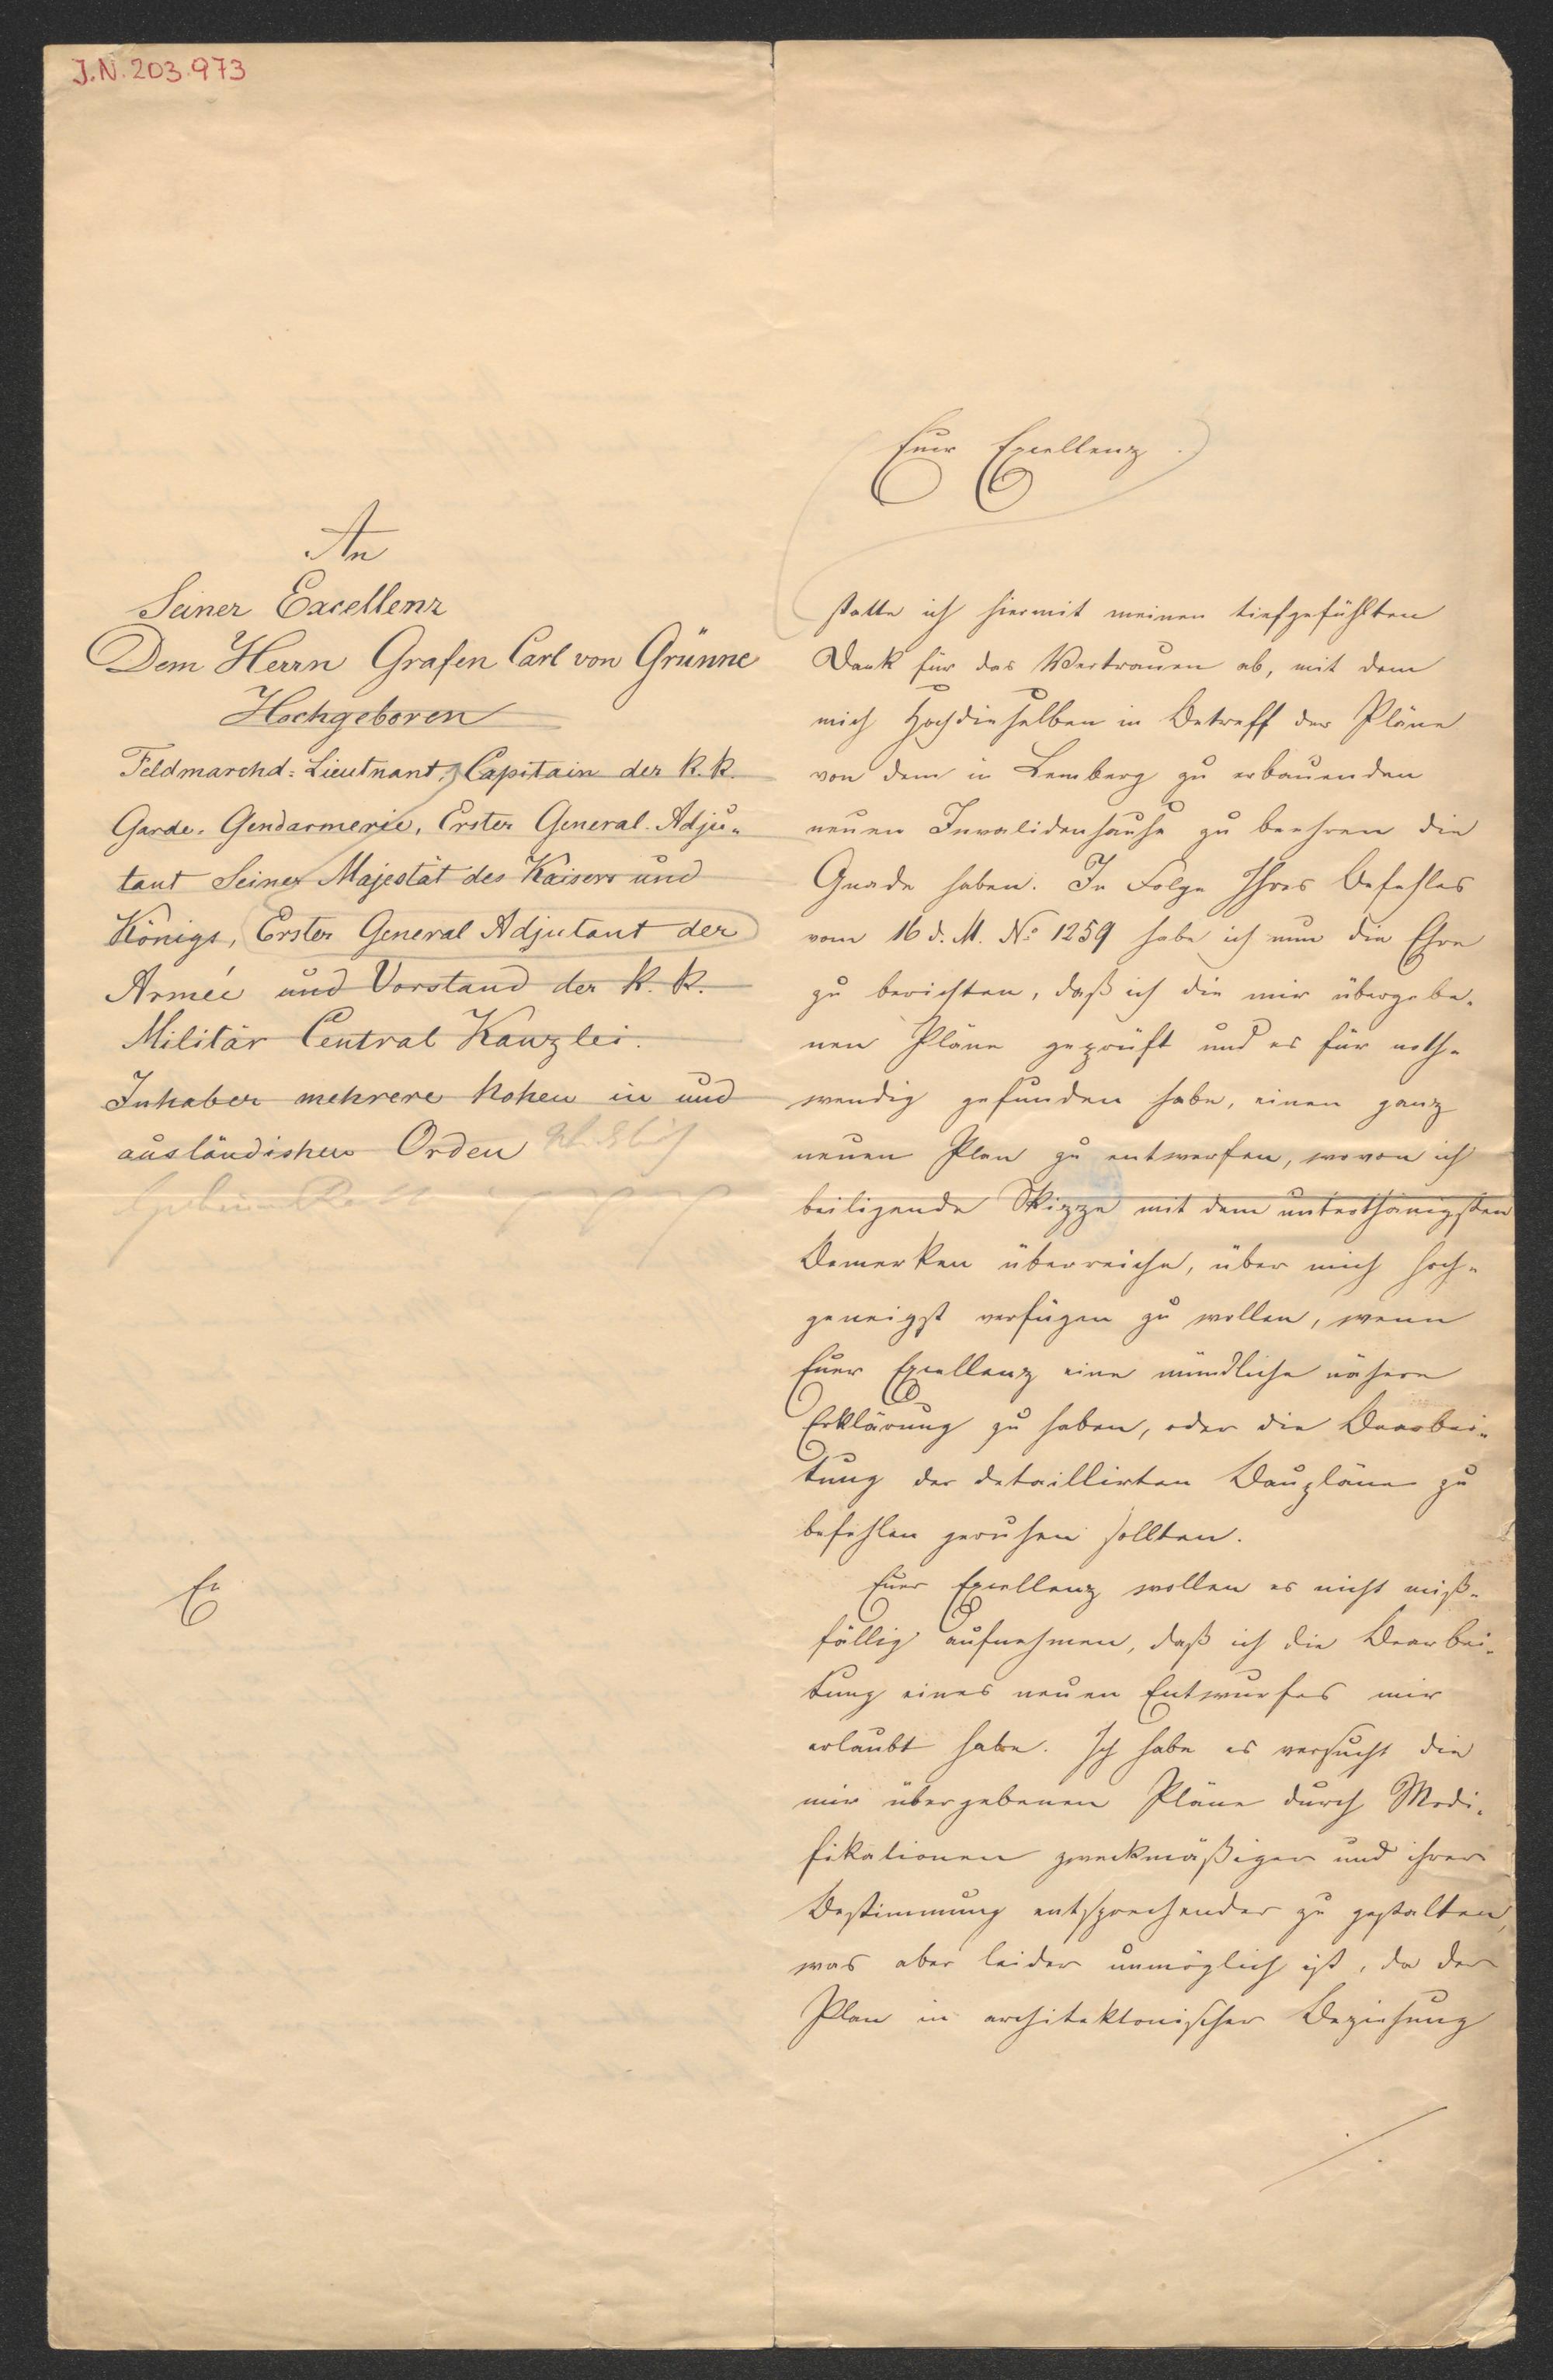 J.N. 203.973
An
Seiner Excellenz
Dem Herrn Grafen Carl von Grünne
Hochgeboren
Feldmarchd: Lieutnant, Capitain der k. k.
Garde-Gendarmerie, Erster General-Adju-
tant Seiner Majestät des Kaisers und
Königs, Erster General Adjutant der
Armée und Vorstand der k. k.
Militär Central Kanzlei.
Inhaber mehrere hohen in und
ausländishen Orden
Euer Excellenz
statte ich hiermit meinen tiefgefühlten
Dank für das Vertrauen ab, mit dem
mich Hochdieselben in Betreff der Pläne
von dem in Lemberg zu erbauenden
neuen Invalidenhause zu beehren die
Gnade haben. In Folge Ihres Befehles
vom 16 d. M. No 1259 habe ich nun die Ehre
zu berichten, daß ich die mir übergebe-
nen Pläne geprüft und es für noth-
wendig gefunden habe, einen ganz
neuen Plan zu entwerfen, wovon ich
beiligende Skizze mit dem unterthänigsten
Bemerken überreiche, über mich hoch-
geneigst verfügen zu wollen, wenn
Euer Excellenz eine mündliche nähere
Erklärung zu haben, oder die Bearbei-
tung der detaillirten Baupläne zu
befehlen geruhen sollten.
Euer Excellenz wollen es nicht miß-
fällig aufnehmen, daß ich die Bearbei-
tung eines neuen Entwurfes mir
erlaubt habe. Ich habe es versucht die
mir übergebenen Pläne durch Modi-
fikationen zweckmäßiger und ihrer
Bestimmung entsprechender zu gestalten,
was aber leider unmöglich ist, da der
Plan in architektonischer Beziehung